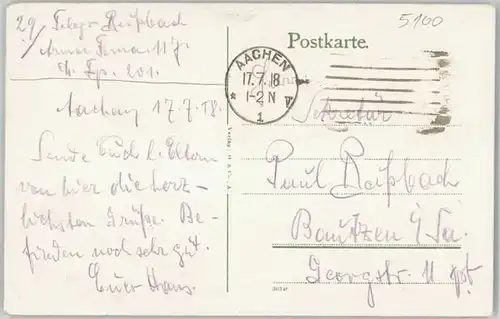 29/ Telegr. Reißbach
5100
Postkarte.
AACHEN
17.7.18
1-2 N
1
Aachen 17.7.18.
Sende Euch l. Eltern
von hier die herz-
lichsten Grüße. Be-
finden noch sehr gut.
Euer Hans.
Sekretär
Paul Reißbach
Bautzen i/Sa.
Georgstr. 11 ptr.